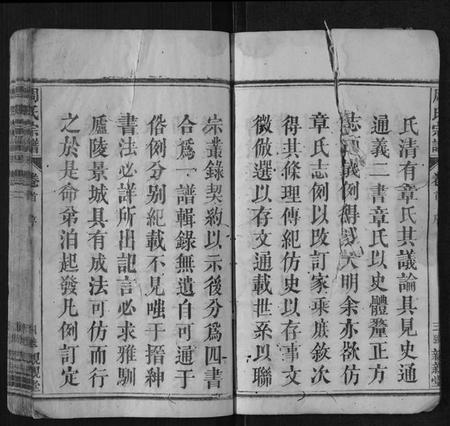 氏清有章氏其議論具見史通
通義二書章氏以史體釐正方
志 義例得 大明余亦欲仿
章氏志例以改訂家乘庶敘次
得其條理傳紀仿史以存事文
徵倣選以存文通載世系以聯
宗叢錄契約以示後分爲四書
合爲一譜輯錄無遺自可通于
俗例分别紀載不見嗤于搢紳
書法必詳所出記言必求雅馴
廬陵景城具有成法可仿而行
之於是命弟泊起發凡例訂定
周氏宗譜
卷首
序